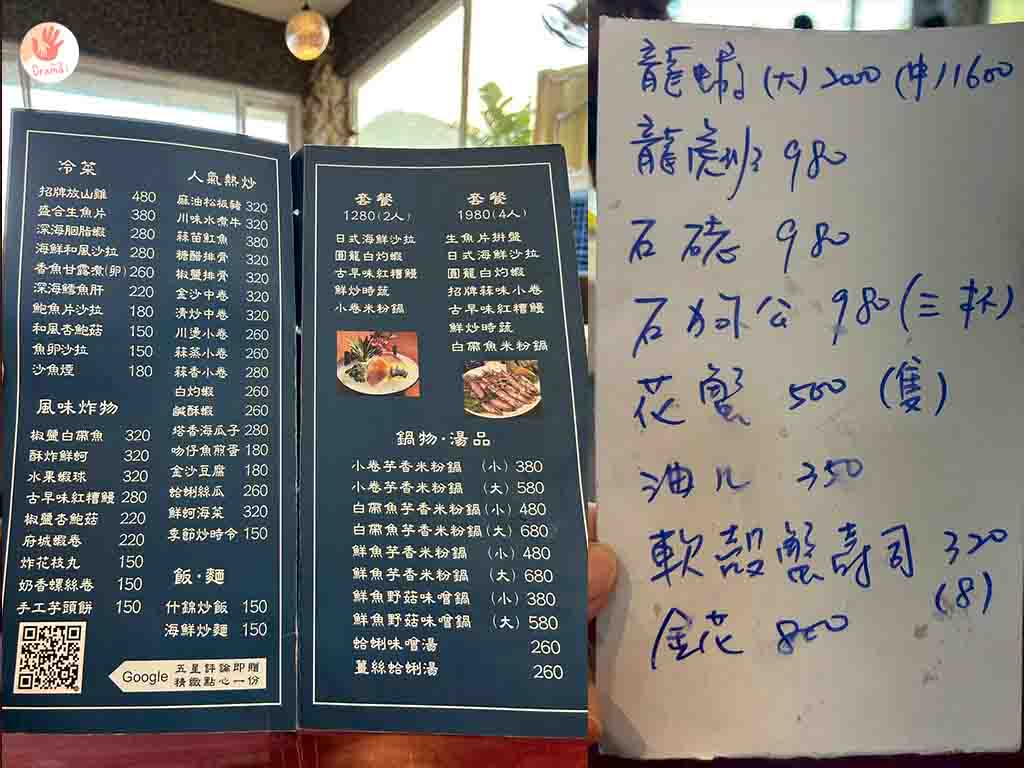 Drama
冷菜
招牌放山雞 480
盛合生魚片 380
深海胭脂蝦 280
海鮮和風沙拉 280
香魚甘露煮(卵) 260
深海鱈魚肝 220
鮑魚片沙拉 180
和風杏鮑菇 150
魚卵沙拉 150
沙魚煙 180
風味炸物
椒鹽白帶魚 320
酥炸鮮蚵 320
水果蝦球 320
古早味紅糟鰻 280
椒鹽杏鮑菇 220
府城蝦卷 220
炸花枝丸 150
奶香螺絲卷 150
手工芋頭餅 150
人氣熱炒
麻油松板豬 320
川味水煮牛 320
蒜苗魟魚 380
糖醋排骨 320
椒鹽排骨 320
金沙中卷 320
清炒中卷 320
川燙小卷 260
蒜蒸小卷 260
蒜香小卷 280
白灼蝦 260
鹹酥蝦 260
塔香海瓜子 280
吻仔魚煎蛋 180
金沙豆腐 180
蛤蜊絲瓜 260
鮮蚵海菜 320
季節炒時令 150
飯·麵
什錦炒飯 150
海鮮炒麵 150
Google 五星評論即贈
精緻點心一份
套餐
1280(2人)
日式海鮮沙拉
圓龍白灼蝦
古早味紅糟鰻
鮮炒時蔬
小卷米粉鍋
套餐
1980(4人)
生魚片拼盤
日式海鮮沙拉
圓龍白灼蝦
招牌蒜味小卷
古早味紅糟鰻
鮮炒時蔬
白帶魚米粉鍋
鍋物·湯品
小卷芋香米粉鍋 (小) 380
小卷芋香米粉鍋 (大) 580
白帶魚芋香米粉鍋 (小) 480
白帶魚芋香米粉鍋 (大) 680
鮮魚芋香米粉鍋 (小) 480
鮮魚芋香米粉鍋 (大) 680
鮮魚野菇味噌鍋 (小) 380
鮮魚野菇味噌鍋 (大) 580
蛤蜊味噌湯 260
薑絲蛤蜊湯 260
龍蝦 (大) 2000 (中) 1600
龍虎斑 980
石 980
石狗公 980 (三杯)
花蟹 500 (隻)
油 350
軟殼蟹壽司 320
(8)
金花 800